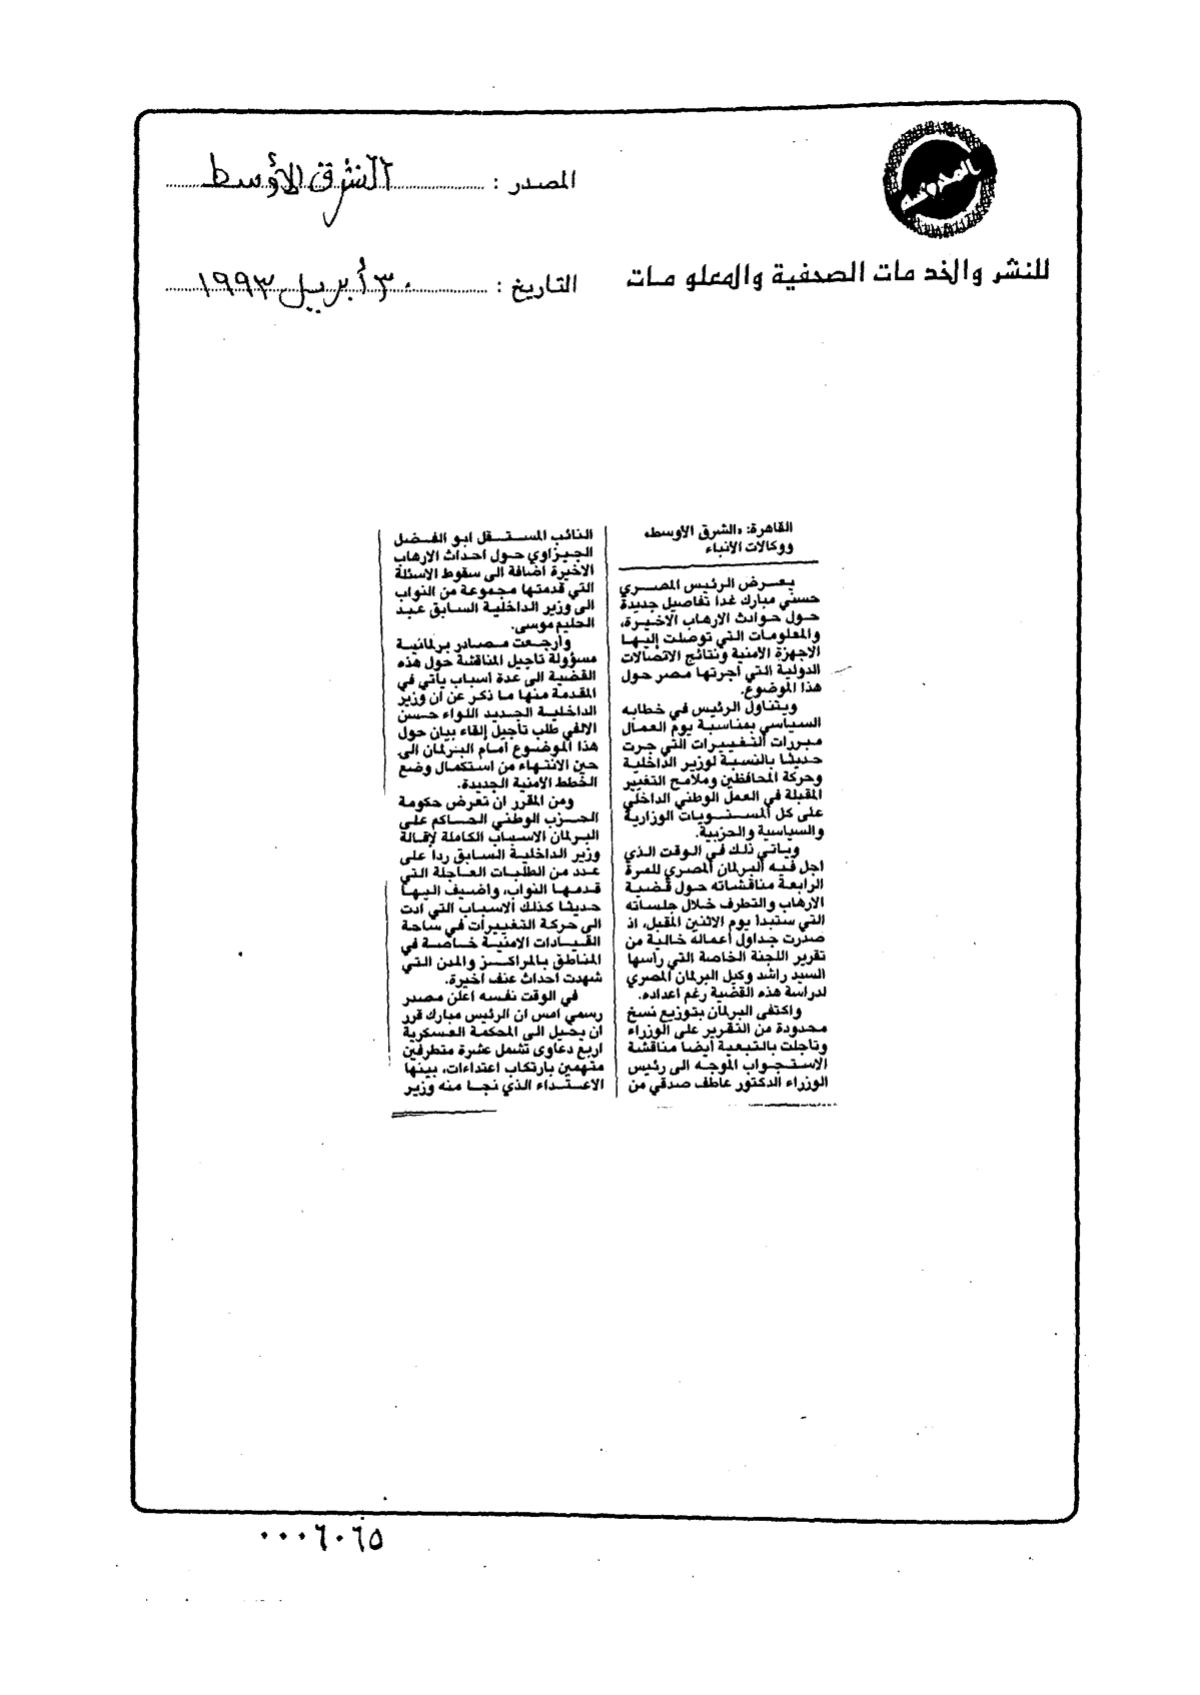 المصدر : الشرق الأوسط
للنشر والخدمات الصحفية والمعلومات
التاريخ : ٣٠ أبريل ١٩٩٣
القاهرة: «الشرق الأوسط»
ووكالات الأنباء
يعرض الرئيس المصري
حسني مبارك غدا تفاصيل جديدة
حول حوادث الارهاب الاخيرة،
والمعلومات التي توصلت إليها
الاجهزة الامنية ونتائج الاتصالات
الدولية التي أجرتها مصر حول
هذا الموضوع.
ويتناول الرئيس في خطابه
السياسي بمناسبة يوم العمال
مبررات التغييرات التي جرت
حديثا بالنسبة لوزير الداخلية
وحركة المحافظين وملامح التغيير
المقبلة في العمل الوطني الداخلي
على كل المستويات الوزارية
والسياسية والحزبية.
وياتي ذلك في الوقت الذي
اجل فيه البرلمان المصري للمرة
الرابعة مناقشاته حول قضية
الارهاب والتطرف خلال جلساته
التي ستبدا يوم الاثنين المقبل، اذ
صدرت جداول أعماله خالية من
تقرير اللجنة الخاصة التي رأسها
السيد راشد وكيل البرلمان المصري
لدراسة هذه القضية رغم اعداده.
واكتفى البرلمان بتوزيع نسخ
محدودة من التقرير على الوزراء
وتاجلت بالتبعية أيضا مناقشة
الاستجواب الموجه الى رئيس
الوزراء الدكتور عاطف صدقي من
النائب المستقل ابو الفضل
الجيزاوي حول احداث الارهاب
الاخيرة اضافة الى سقوط الاسئلة
التي قدمتها مجموعة من النواب
الى وزير الداخلية السابق عبد
الحليم موسى.
وأرجعت مصادر برلمانية
مسؤولة تاجيل المناقشة حول هذه
القضية الى عدة اسباب يأتي في
المقدمة منها ما ذكر عن ان وزير
الداخلية الجديد اللواء حسن
الالفي طلب تأجيل إلقاء بيان حول
هذا الموضوع أمام البرلمان الى
حين الانتهاء من استكمال وضع
الخطط الامنية الجديدة.
ومن المقرر ان تعرض حكومة
الحزب الوطني الحاكم على
البرلمان الاسباب الكاملة لإقالة
وزير الداخلية السابق ردا على
عدد من الطلبات العاجلة التي
قدمها النواب، واضيف اليها
حديثا كذلك الاسباب التي ادت
الى حركة التغييرات في ساحة
القيادات الامنية خاصة في
المناطق بالمراكز والمدن التي
شهدت احداث عنف اخيرة.
في الوقت نفسه اعلن مصدر
رسمي امس ان الرئيس مبارك قرر
ان يحيل الى المحكمة العسكرية
اربع دعاوى تشمل عشرة متطرفين
متهمين بارتكاب اعتداءات، بينها
الاعتداء الذي نجا منه وزير
٠٠٠٦٠٦٥